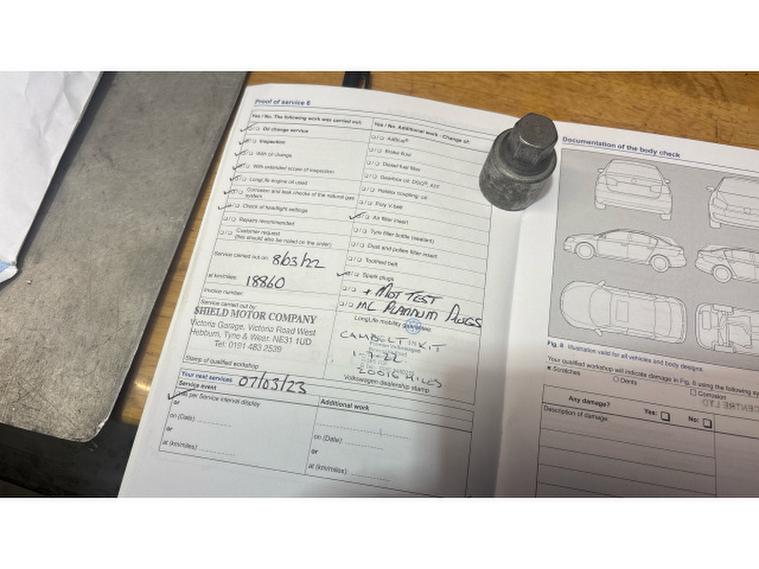 Proof of service 6
Yes / No. The following work was carried out:
Oil change service
Inspection
With oil change
With extended scope of inspection
LongLife engine oil used
Corrosion and leak checks of the natural gas system
Check of headlight settings
Repairs recommended
Customer request
(this should also be noted on the order)
Service carried out on: 8/03/22
at km/miles: 18860
Invoice number:
Service carried out by:
SHIELD MOTOR COMPANY
Victoria Garage, Victoria Road West
Hebburn, Tyne & Wear. NE31 1UD
Tel: 0191 483 2539
Stamp of qualified workshop
Yes / No. Additional work - Change of:
AdBlue®
Brake fluid
Diesel fuel filter
Gearbox oil: DSG®, AT
Haldex coupling: oil
Poly V-belt
Air filter insert
Tyre filler bottle (sealant)
Dust and pollen filter insert
Toothed belt
Spark plugs
+ MOT TEST
PLATINUM PLUGS
LongLife mobility guarantee
CAMBELT KIT
MILES
Volkswagen dealership stamp
Your next services 07/03/23
Service event
As per Service interval display
or
on (Date)
or
at (km/miles)
Additional work
on (Date)
or
at (km/miles)
Documentation of the body check
Fig. 8 Illustration valid for all vehicles and body designs.
Your qualified workshop will indicate damage in Fig. 8 using the following
Scratches
Dents
Corrosion
Any damage? Yes: No:
Description of damage: